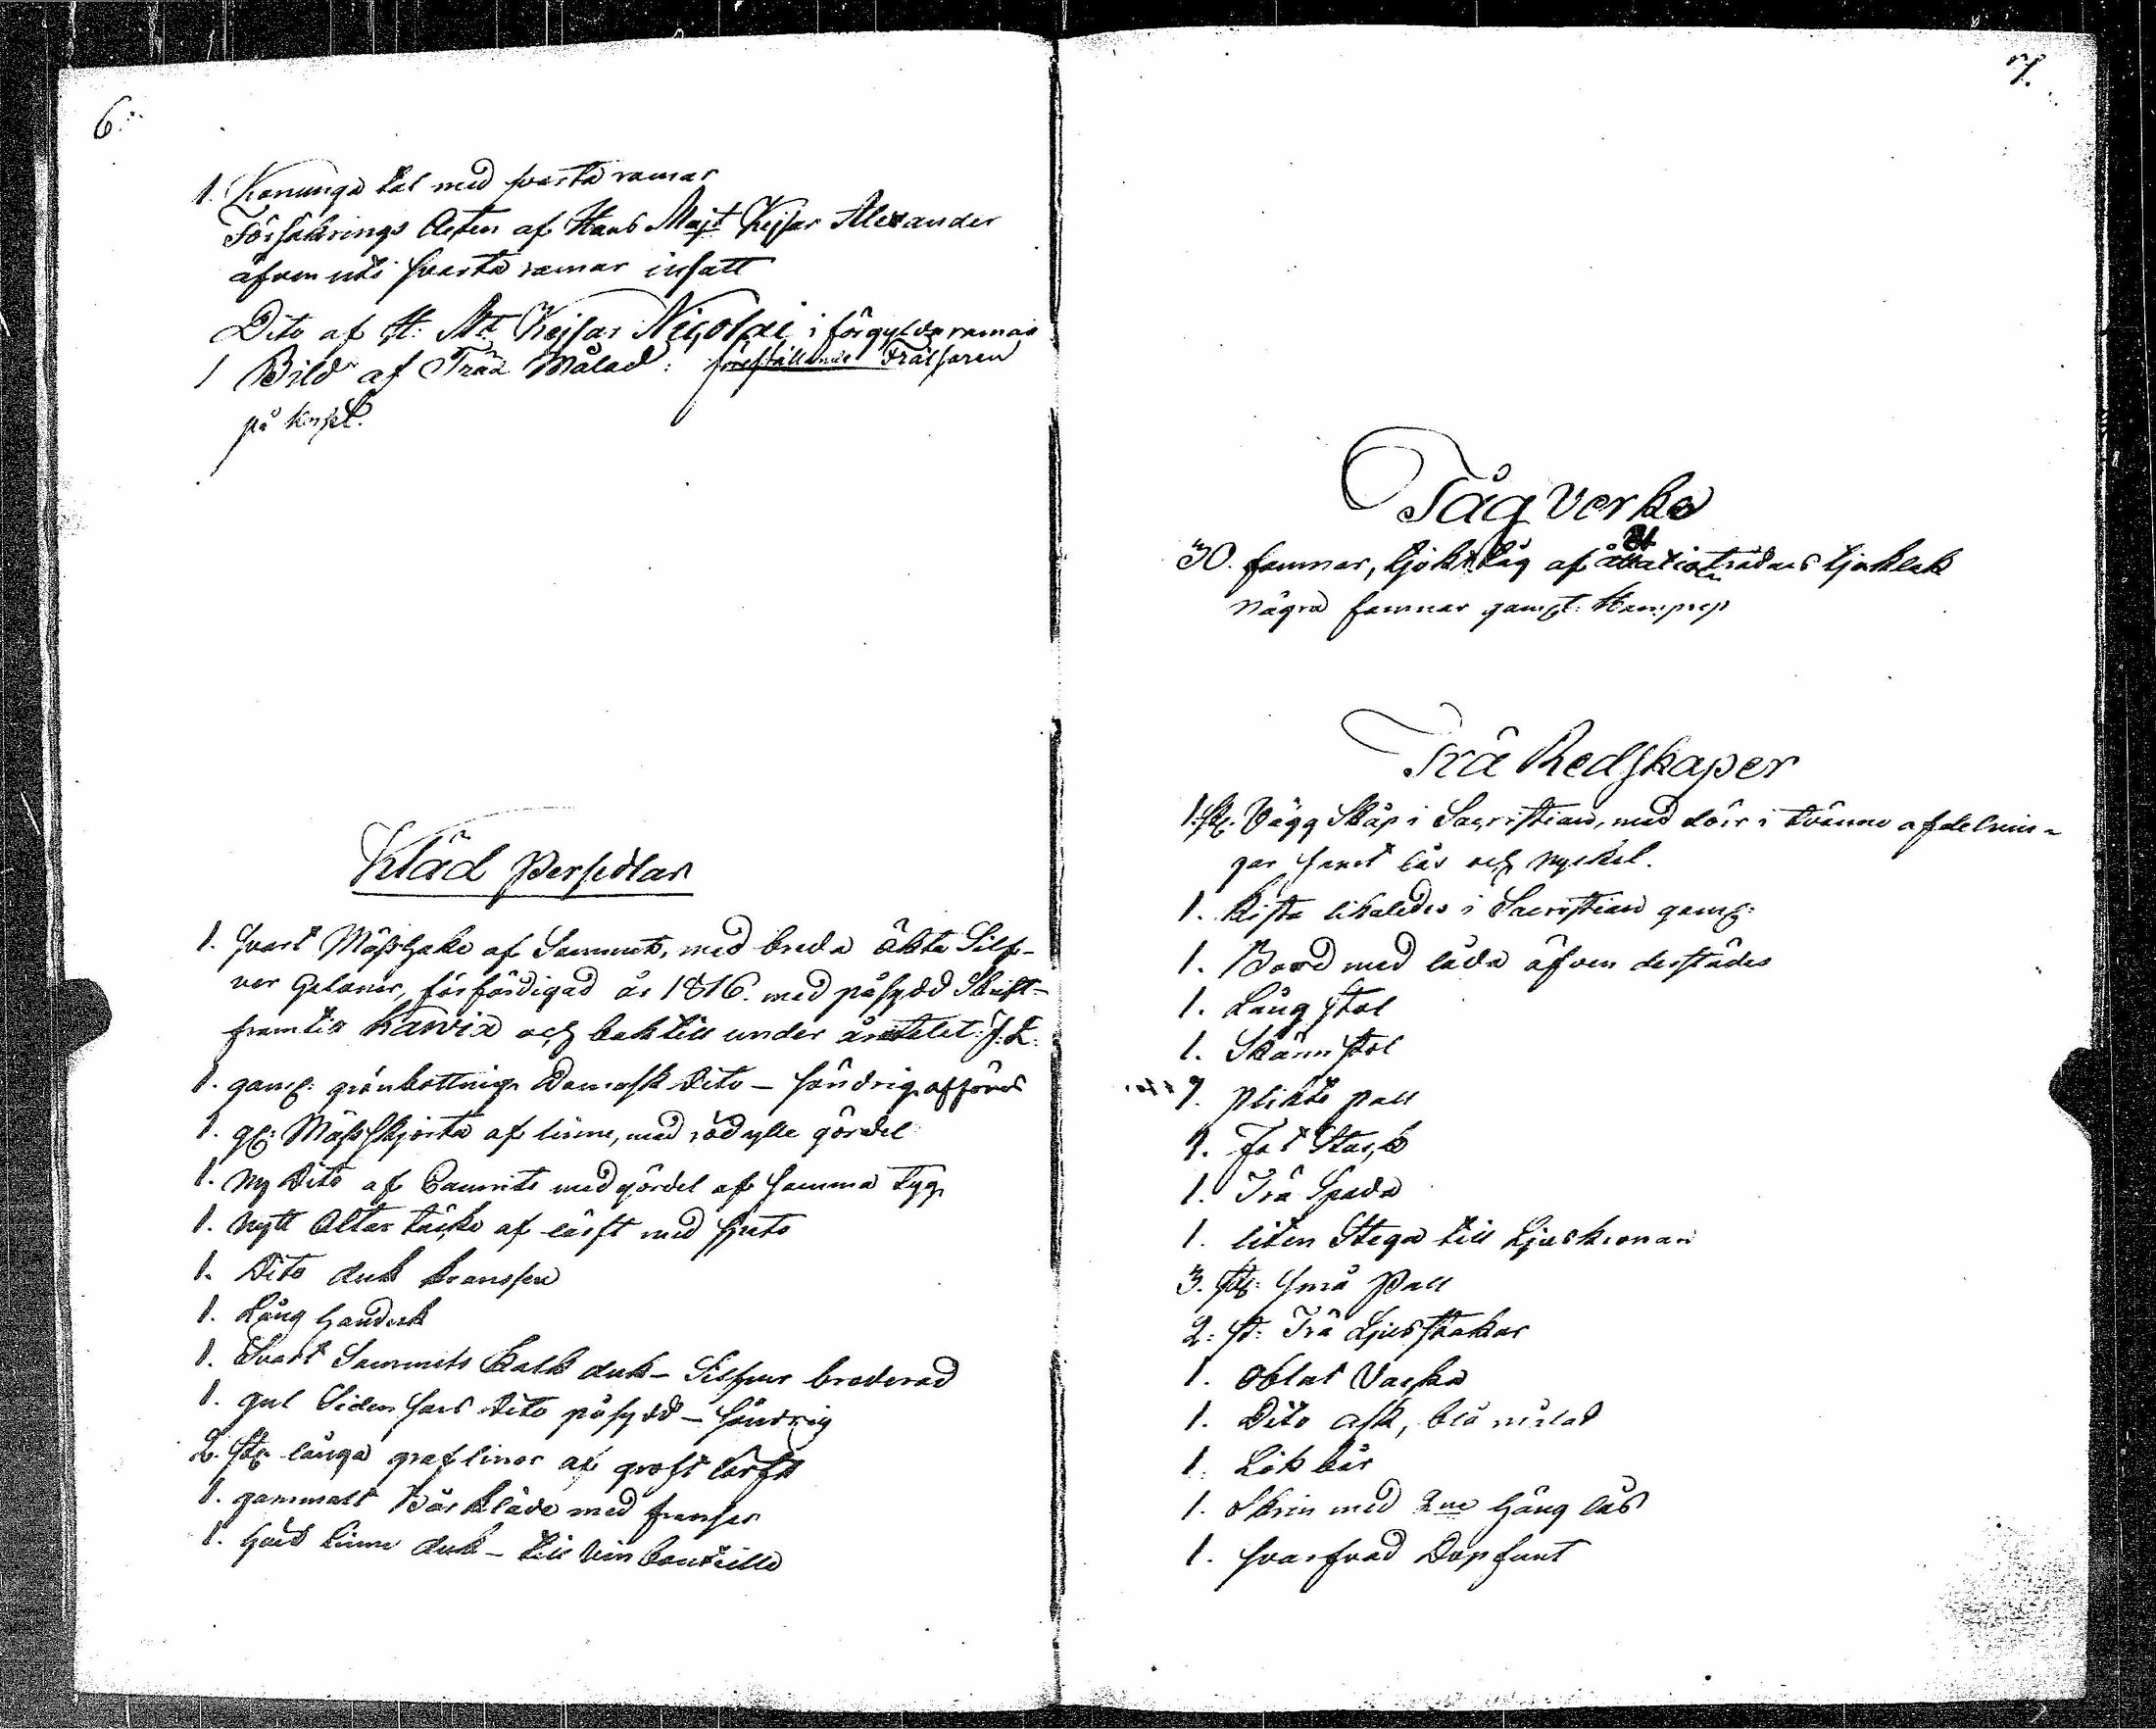 6.
1. Konunga tal med svarta ramar
Försäkrings Acten af Hans Majt Kejsar Alexander
äfven uti svarta ramar insatt
Dito af H. Mt Kejsar Nicolai i förgylda ramar
1 Bild af Trää Målad: föreställande Frälsaren
på korset.
Kläd Persedlar
1. svart Mässhake af Sammet, med breda äkta Silf-
ver Galoner, förfärdigad år 1816. med påsydd Skrift-
framtill Karvia och baktill under årtalet: J. L.
1. gaml: grönbottnig Damask Dito - söndrig afföres
1. gl: Mässskjorta af linne, med röd ylle gördel
1. ny Dito af med gördel af samma tyg
1. nytt Altar täcke af lärft med spets
1. Dito duk
1. Lång Handduk
1. Svart Sammets Kalk duk - Silfver broderad
1. gul Siden Sars Dito påsydd - söndrig
2. st. långa graflinor af groft lärft
1. gammalt Bår kläde med fransar
1. Linne duk - till Vin bouteille
7.
Tåg verke
30. famnar, tjokt tåg af trådars tjoklek
några famnar gamt: Hamprep
Trä Redskaper
1. st. Vägg Skåp i Sacristian, med dörr i tvänne afdelnin-
gar samt lås och nyckel.
1. Kista likaledes i Sacristian gaml:
1. Bord med låda äfven derstädes
1. Lång stol
1. Skänn stol
1. plikts pall
1. Fot
1. Trä Spada
1. liten Stega till Ljuskronan
3. st: små Pall
2: st: Trä Ljusstakar
1. Oblat Vacka
1. Dito ask, blå målad
1. Lik bår
1. Skrin med 2ne Häng lås
1. svarfvad Dopfunt